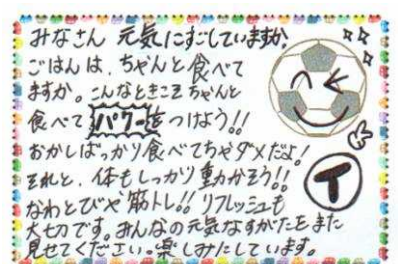 みなさん 元気にすごしていますか。
ごはんは、ちゃんと食べて
ますか。こんなときこそちゃんと
食べてパワーをつけよう!!
おかしばっかり食べてちゃダメだよ!
それと、体もしっかり動かそう!!
なわとびや筋トレ!! リフレッシュも
大切です。みんなの元気なすがたをまた
見せてください。楽しみにしています。
イ